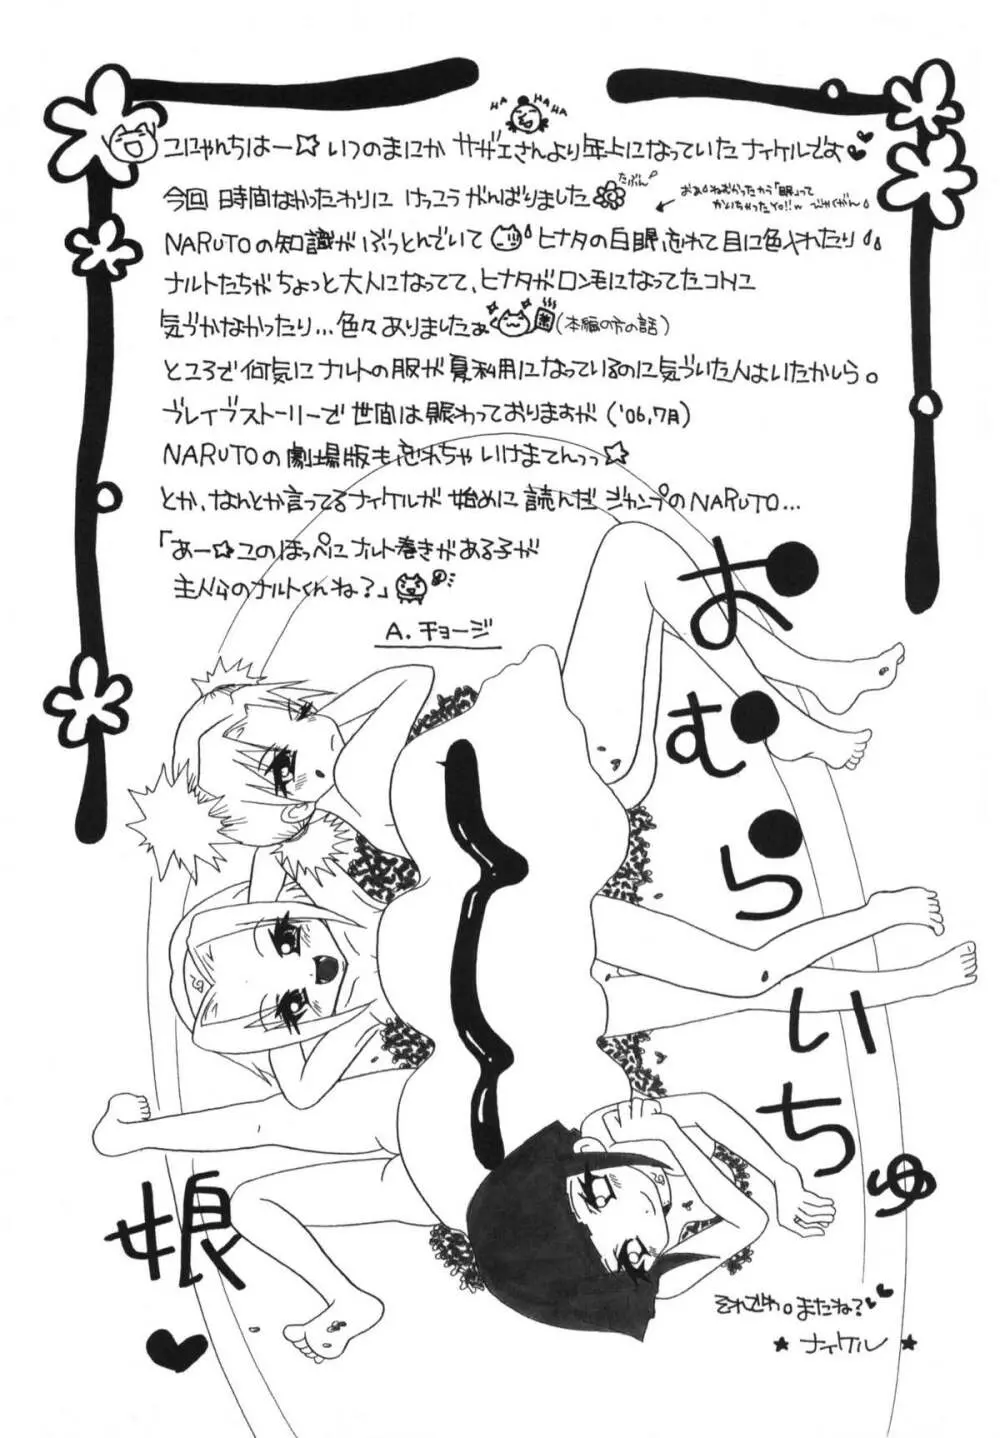 HA HA HA
こにゃんちはー☆ いつのまにか サザエさんより年上になっていたナイケルです♥
今回 時間なかったわりに けっこうがんばりました
たぶん
NARUTOの知識がぶっとんでいて ヒナタの白眼忘れて目に色入れたり
ナルトたちがちょっと大人になってて、ヒナタがロン毛になってたコトに
気づかなかったり…色々ありましたぁ (本編の方の話)
ところで何気にナルトの服が夏利用になっているのに気づいた人はいたかしら。
ブレイブストーリーで世間は賑わっておりますが ('06,7月)
NARUTOの劇場版も忘れちゃいけまてんっっ☆
とか、なんとか言ってるナイケルが 始めに読んだ ジャンプのNARUTO…
「あー☆このほっぺにナルト巻きがある子が
主人公のナルトくんね？」
A. チョージ
おむらいちゅ
娘
それでわ。またね？
★ ナイケル ★